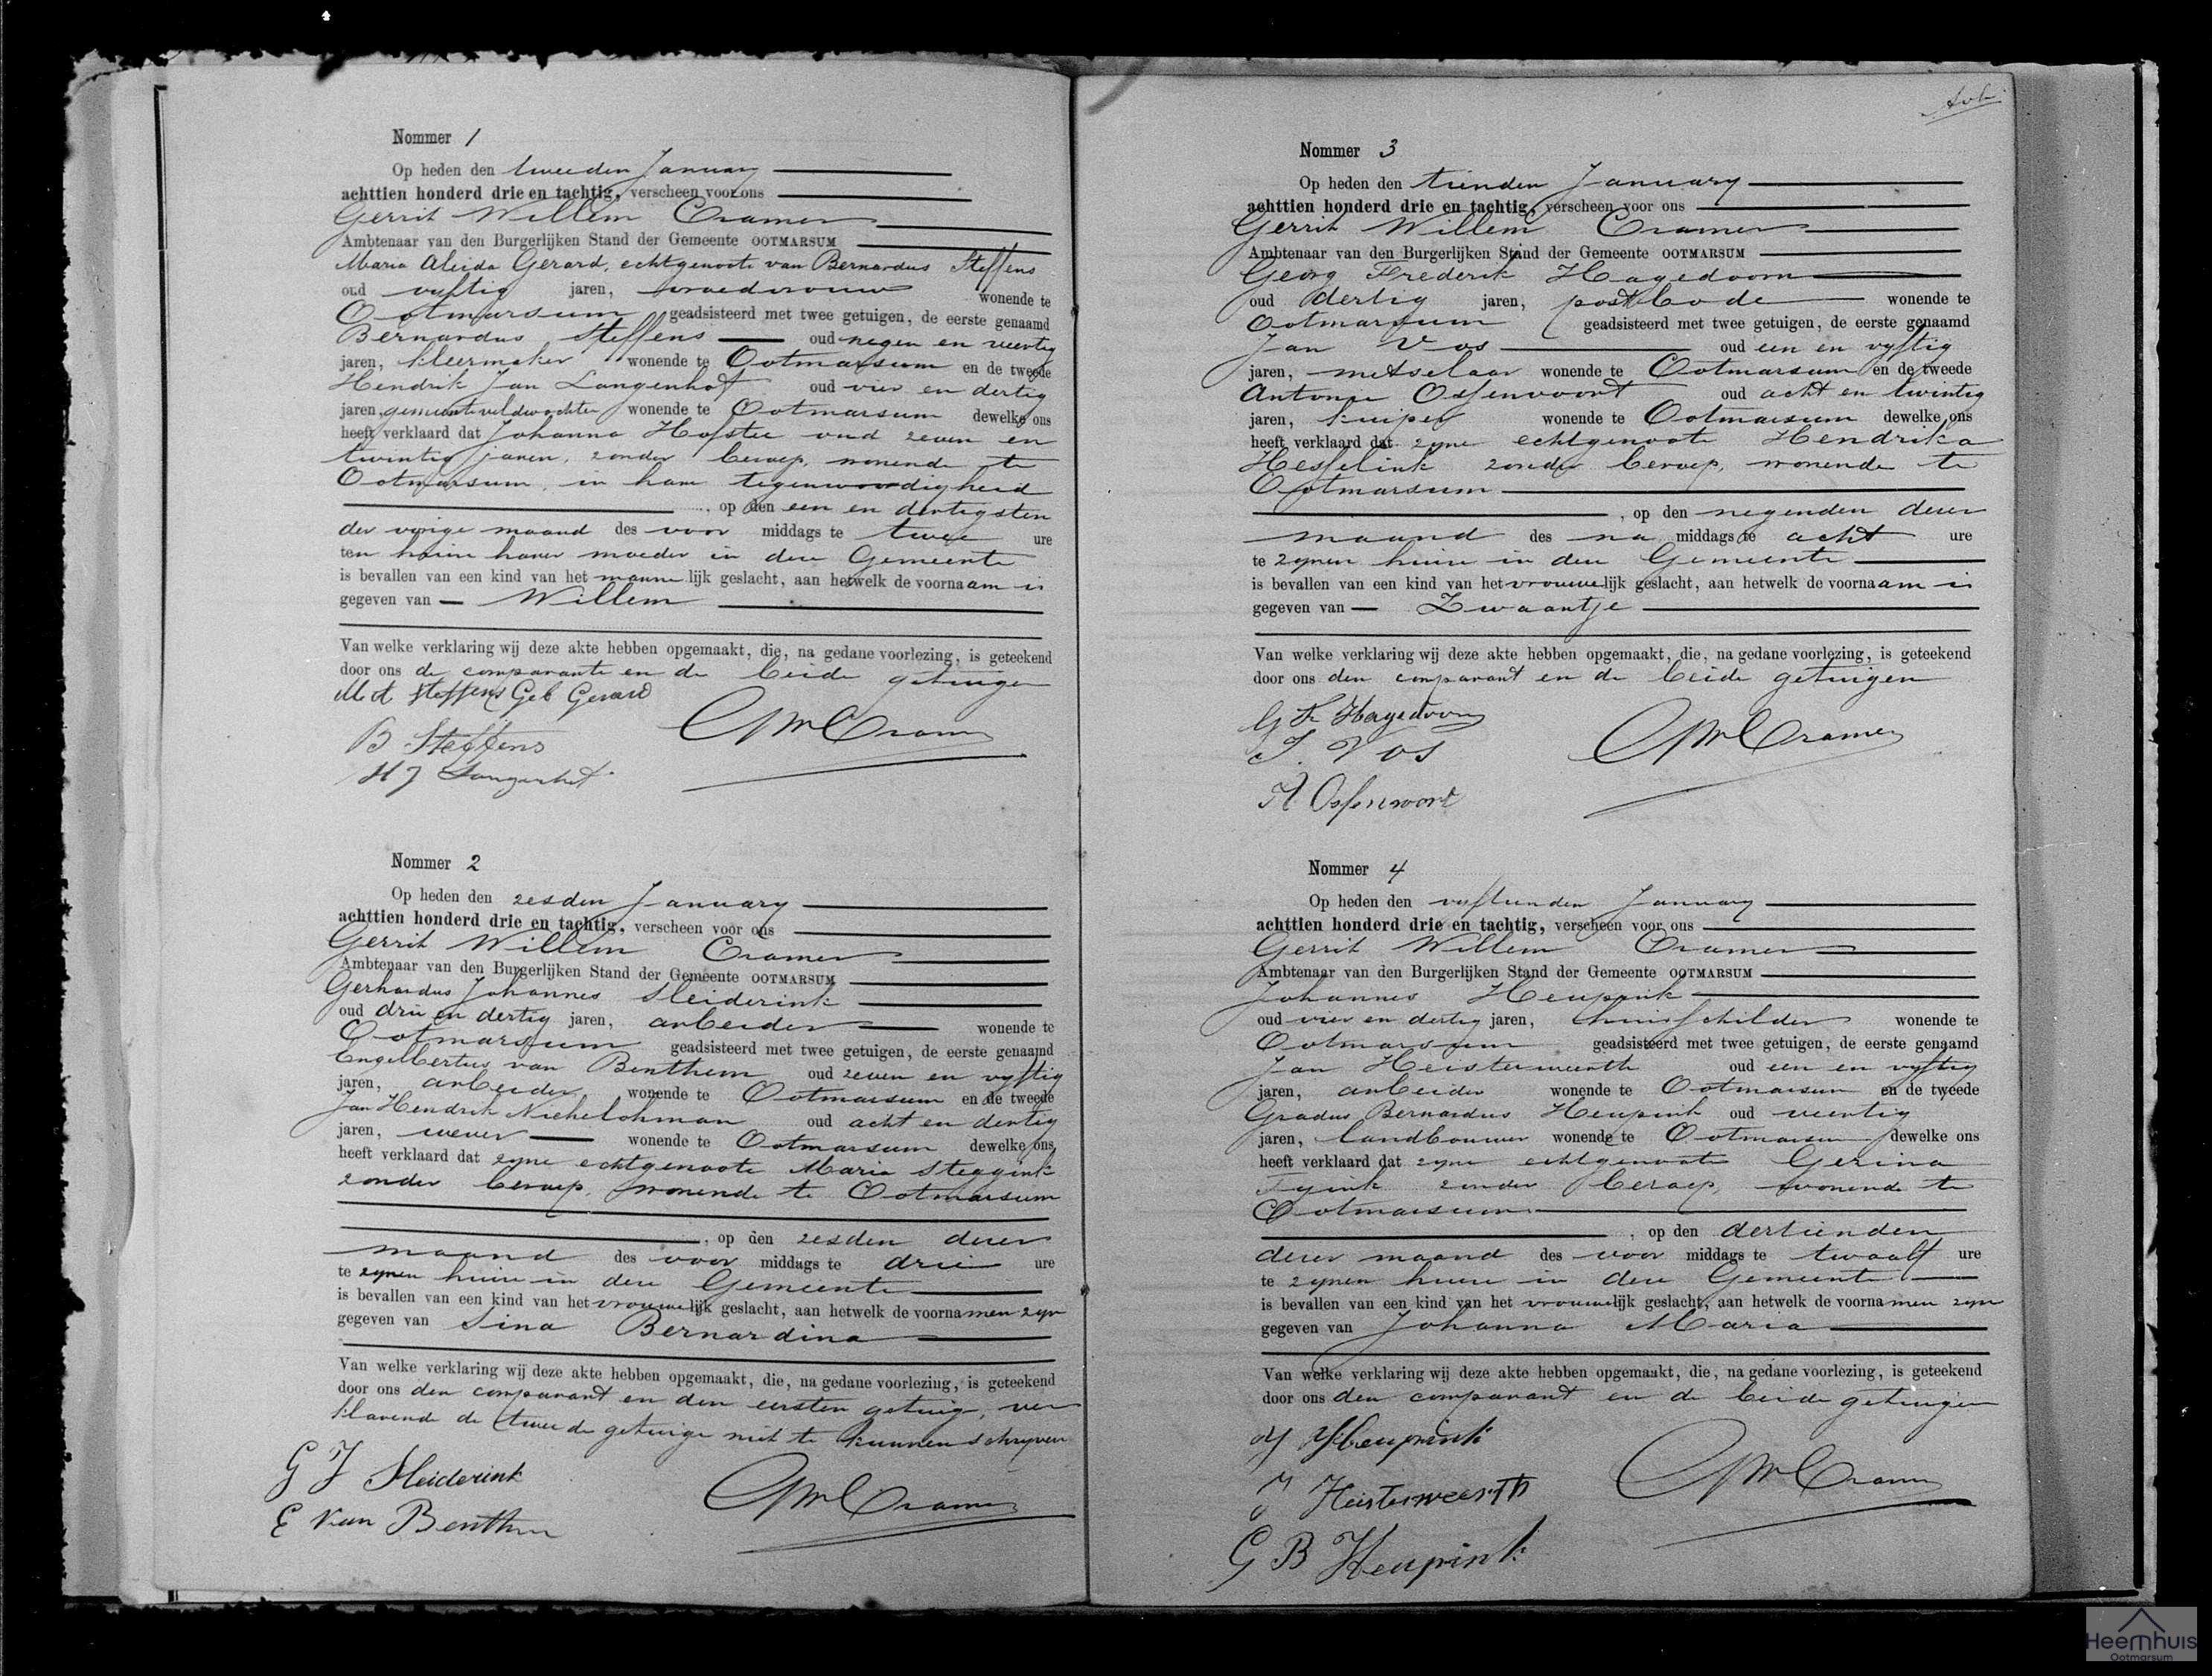 Nommer 1
Op heden den tweeden January
achttien honderd drie en tachtig, verscheen voor ons
Gerrit Willem Cramer
Ambtenaar van den Burgerlijken Stand der Gemeente OOTMARSUM
Maria Aleida Gerard, echtgenoote van Bernardus Steffens
oud vyftig jaren, vroedvrouw wonende te
Ootmarsum geadsisteerd met twee getuigen, de eerste genaamd
Bernardus Steffens oud negen en veertig
jaren, kleermaker wonende te Ootmarsum en de tweede
Hendrik Jan Langenhof oud vier en dertig
jaren, gemeenteveldwachter wonende te Ootmarsum dewelke ons
heeft verklaard dat Johanna Hofstee oud zeven en
twintig jaren, zonder beroep, wonende te
Ootmarsum, in hare tegenwoordigheid
, op den een en dertigsten
der vorige maand des voor middags te twee ure
ten huize harer moeder in deze Gemeente
is bevallen van een kind van het mannelijk geslacht, aan hetwelk de voornaam is
gegeven van Willem
Van welke verklaring wij deze akte hebben opgemaakt, die, na gedane voorlezing, is geteekend
door ons de comparante en de beide getuigen
M A Steffens Geb Gerard
B Steffens GWCramer
HJ Langenhof
Nommer 2
Op heden den zesden January
achttien honderd drie en tachtig, verscheen voor ons
Gerrit Willem Cramer
Ambtenaar van den Burgerlijken Stand der Gemeente OOTMARSUM
Gerhardus Johannes Sleiderink
oud drie en dertig jaren, arbeider wonende te
Ootmarsum geadsisteerd met twee getuigen, de eerste genaamd
Engelbertus van Benthem oud zeven en vyftig
jaren, arbeider wonende te Ootmarsum en de tweede
Jan Hendrik Nichelohman oud acht en dertig
jaren, wever wonende te Ootmarsum dewelke ons
heeft verklaard dat zyne echtgenoote Maria Steggink
zonder beroep, wonende te Ootmarsum
, op den zesden dezer
maand des voor middags te drie ure
te zynen huize in deze Gemeente
is bevallen van een kind van het vrouwelijk geslacht, aan hetwelk de voornamen zyn
gegeven van Sina Bernardina
Van welke verklaring wij deze akte hebben opgemaakt, die, na gedane voorlezing, is geteekend
door ons den comparant en den eersten getuige, ver
klarende de tweede getuige niet te kunnen schryven
G J Sleiderink
E van Benthem GWCramer
Nommer 3
Op heden den tienden January
achttien honderd drie en tachtig, verscheen voor ons
Gerrit Willem Cramer
Ambtenaar van den Burgerlijken Stand der Gemeente OOTMARSUM
Georg Frederik Hagedoorn
oud dertig jaren, postbode wonende te
Ootmarsum geadsisteerd met twee getuigen, de eerste genaamd
Jan Vos oud een en vyftig
jaren, metselaar wonende te Ootmarsum en de tweede
Antonie Ossenvoort oud acht en twintig
jaren, kuiper wonende te Ootmarsum dewelke ons
heeft verklaard dat zyne echtgenoote Hendrika
Hesselink zonder beroep, wonende te
Ootmarsum
, op den negenden dezer
maand des na middags te acht ure
te zynen huize in deze Gemeente
is bevallen van een kind van het vrouwelijk geslacht, aan hetwelk de voornaam is
gegeven van Zwaantje
Van welke verklaring wij deze akte hebben opgemaakt, die, na gedane voorlezing, is geteekend
door ons den comparant en de beide getuigen
G Fr Hagedoorn
J. Vos GWCramer
A Ossenvoort
Nommer 4
Op heden den vyftienden January
achttien honderd drie en tachtig, verscheen voor ons
Gerrit Willem Cramer
Ambtenaar van den Burgerlijken Stand der Gemeente OOTMARSUM
Johannes Heupink
oud vier en dertig jaren, huisschilder wonende te
Ootmarsum geadsisteerd met twee getuigen, de eerste genaamd
Jan Heisterweerth oud een en vyftig
jaren, arbeider wonende te Ootmarsum en de tweede
Gradus Bernardus Heupink oud veertig
jaren, landbouwer wonende te Ootmarsum dewelke ons
heeft verklaard dat zyne echtgenoote Gerina
Tyink zonder beroep, wonende te
Ootmarsum
, op den dertienden
dezer maand des voor middags te twaalf ure
te zynen huize in deze Gemeente
is bevallen van een kind van het vrouwelijk geslacht, aan hetwelk de voornamen zyn
gegeven van Johanna Maria
Van welke verklaring wij deze akte hebben opgemaakt, die, na gedane voorlezing, is geteekend
door ons den comparant en de beide getuigen
J Heupink
J Heisterweerth GWCramer
G B Heupink
Heemhuis
Ootmarsum